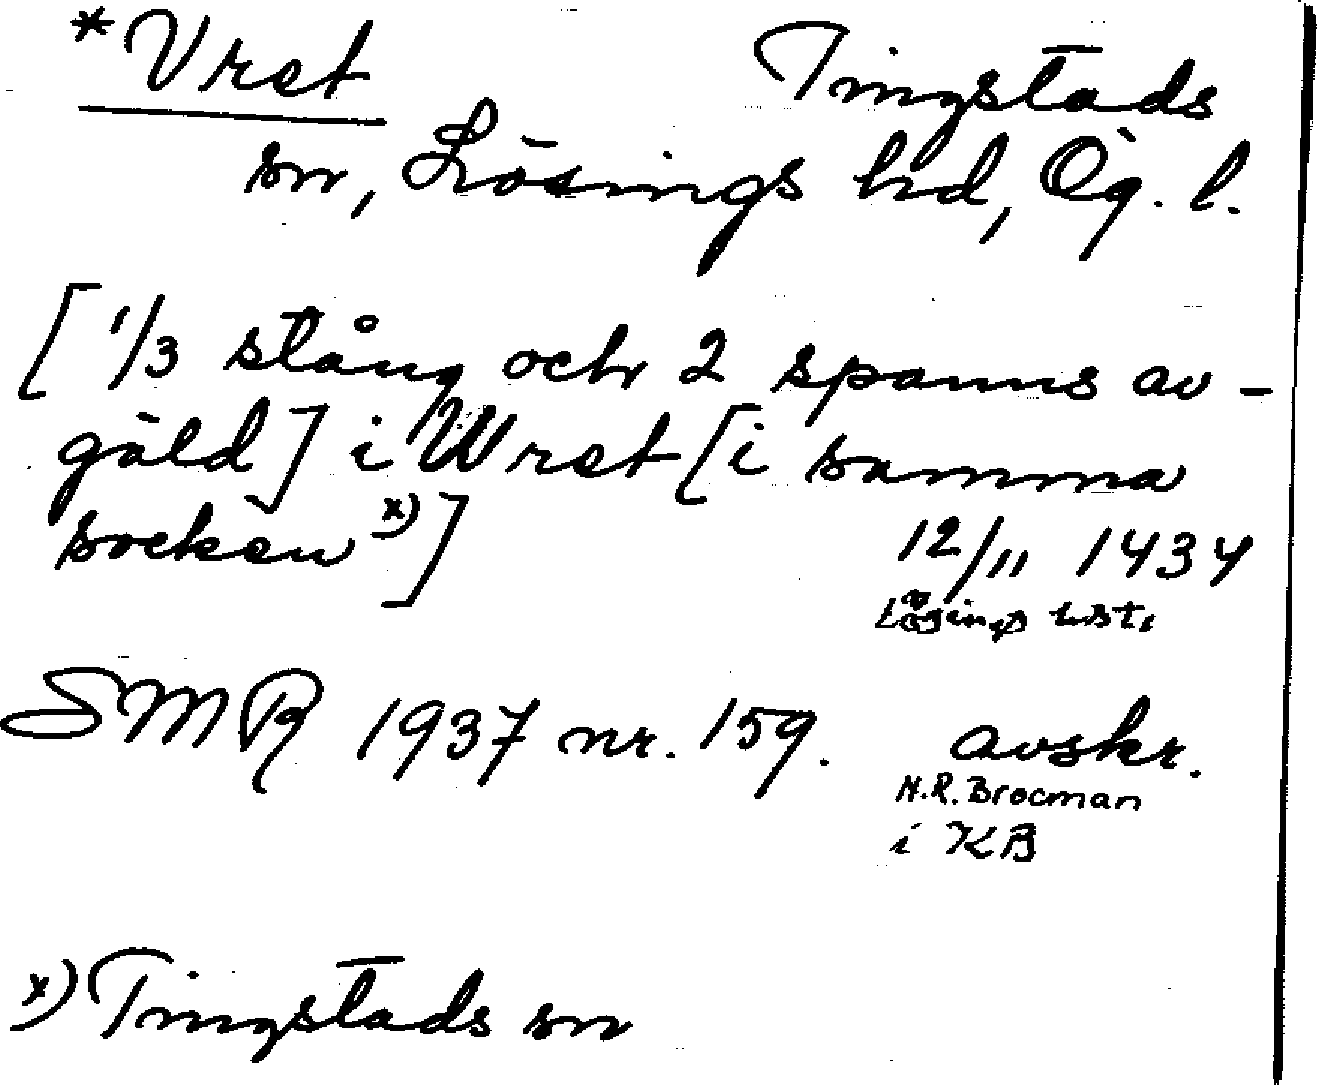 *Vret Tingstads
sn, Lösings hd, Ög. l.
[1/3 stång och 2 spanns av-
gäld] i Wret [i samma
socken x)]
12/11 1434
Lösings hst.
SMR 1937 nr. 159. avskr.
H.R. Brocman
i KB
x) Tingstads sn